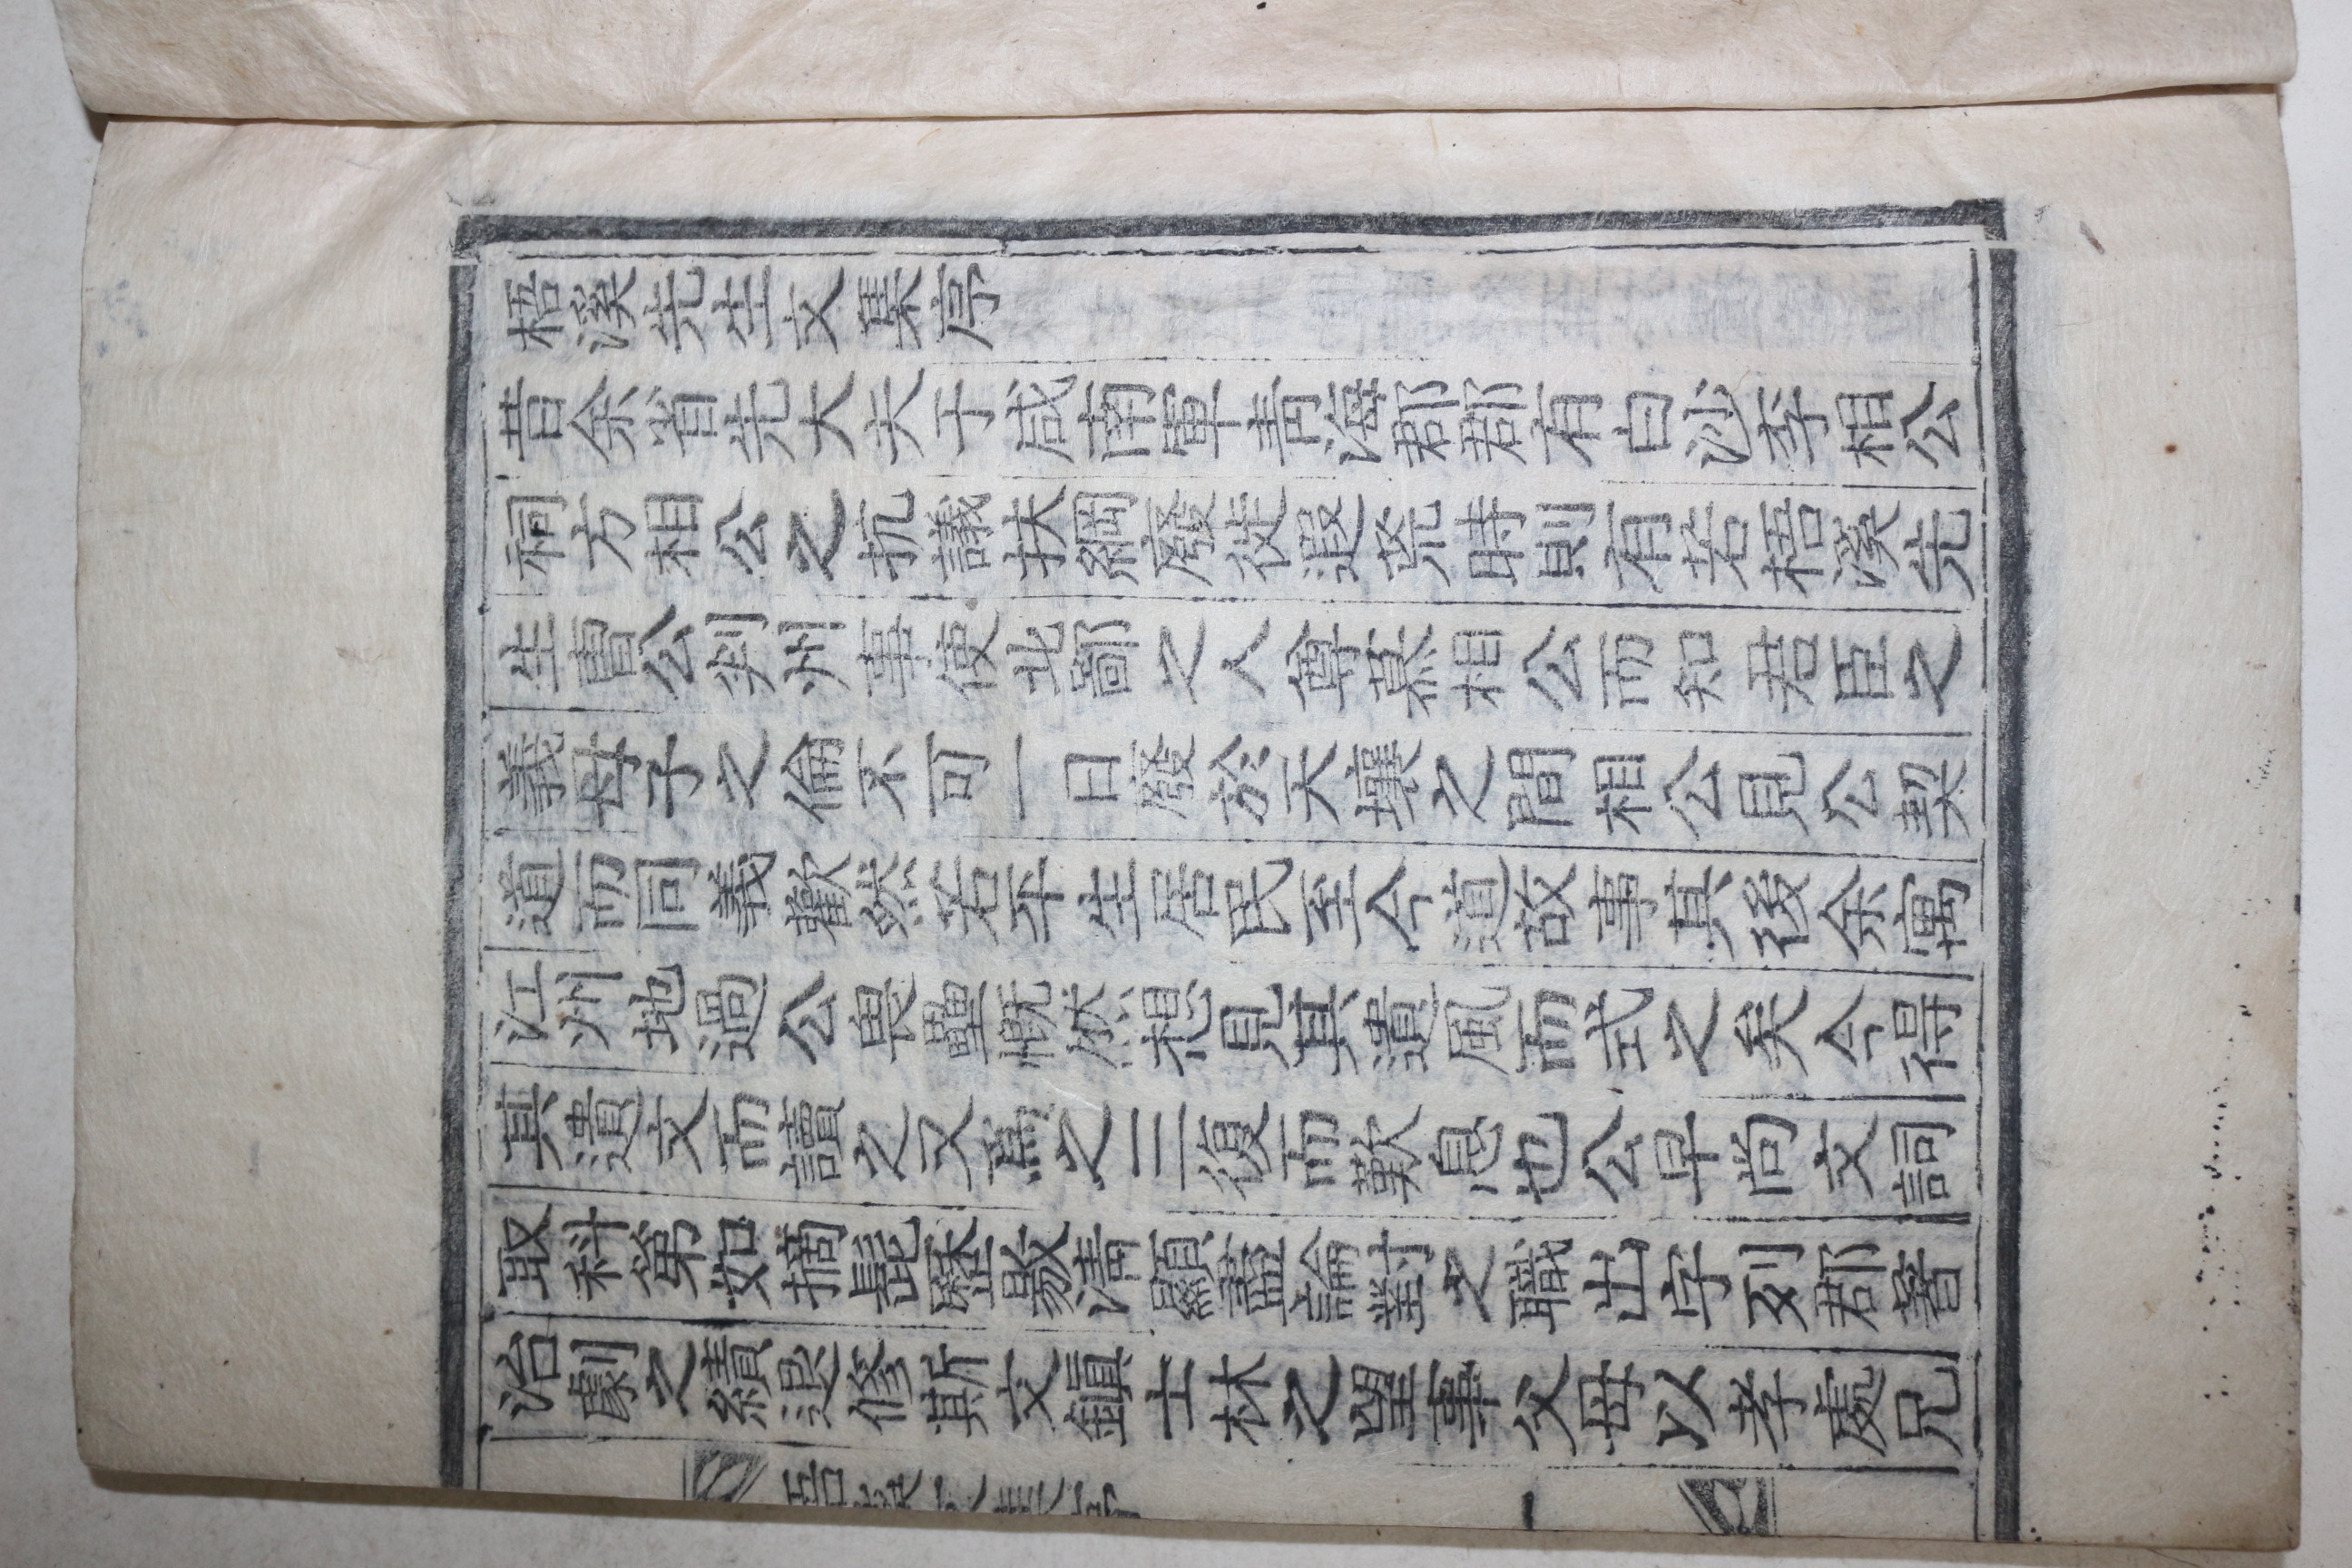 梧溪先生文集序
昔余省先大夫于咸南寧青海郡郡有白沙李相公
祠方相公之抗議扶綱廢徙遐荒時則有若梧溪先
生實公判州事使北鄙之人尊慕相公而知君臣之
義母子之倫不可一日廢於天壤之間相公見公契
道而同義歡然若平生居民至今道故事其後余寓
江州地過公畏壘慨然想見其遺風而式之矣今得
其遺文而讀之又爲之三復而歎息也公早尚文詞
取科第如摘髭歷敭清顯盡論討之職出宰列郡著
治劇之績退修斯文鎭士林之望事父母以孝處兄
梧溪文集序 一